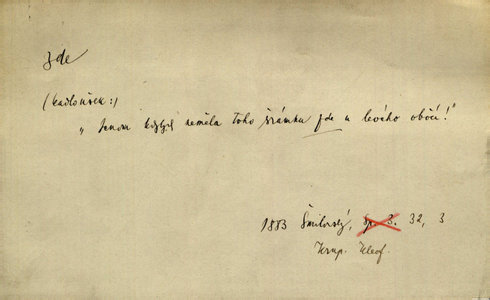 zde
(Kadlouřek:)
„Jenom kdybych neměla toho šrámku zde u levého obočí!"
1883 Šmilovský, sp. 3. 32, 3
Krup. Kleof.